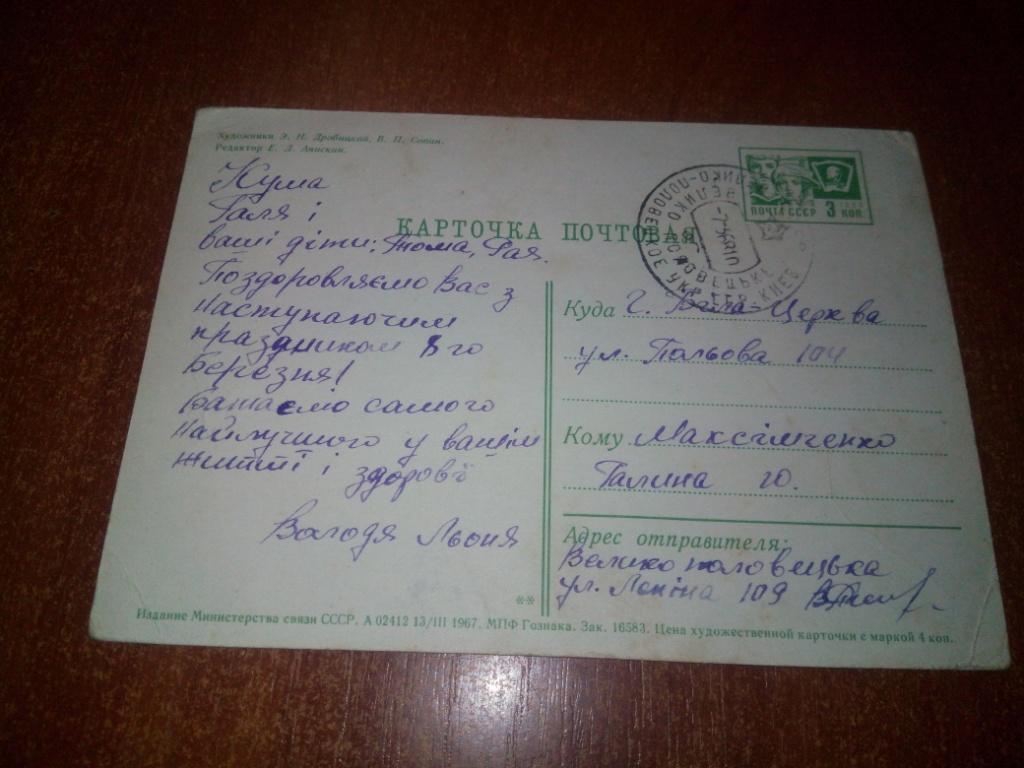 Художники Э. Н. Дробицкий, В. П. Сопин.
Редактор Е. Л. Анискин.
Кума
Галя і
ваші діти: Тома, Рая.
Поздоровляємо Вас з
Наступаючим
праздником 8го
Березня!
Бажаємо самого
Найлучшого у вашім
житті і здоровї
Володя Льоня
КАРТОЧКА ПОЧТОВАЯ
ПОЧТА СССР 3 КОП.
Куда Г. Біла-Церква
ул. Польова 104
Кому Максімченко
Галина Ю.
Адрес отправителя:
Великополовецька
ул. Леніна 109
Издание Министерства связи СССР. А 02412 13/III 1967. МПФ Гознака. Зак. 16583. Цена художественной карточки с маркой 4 коп.